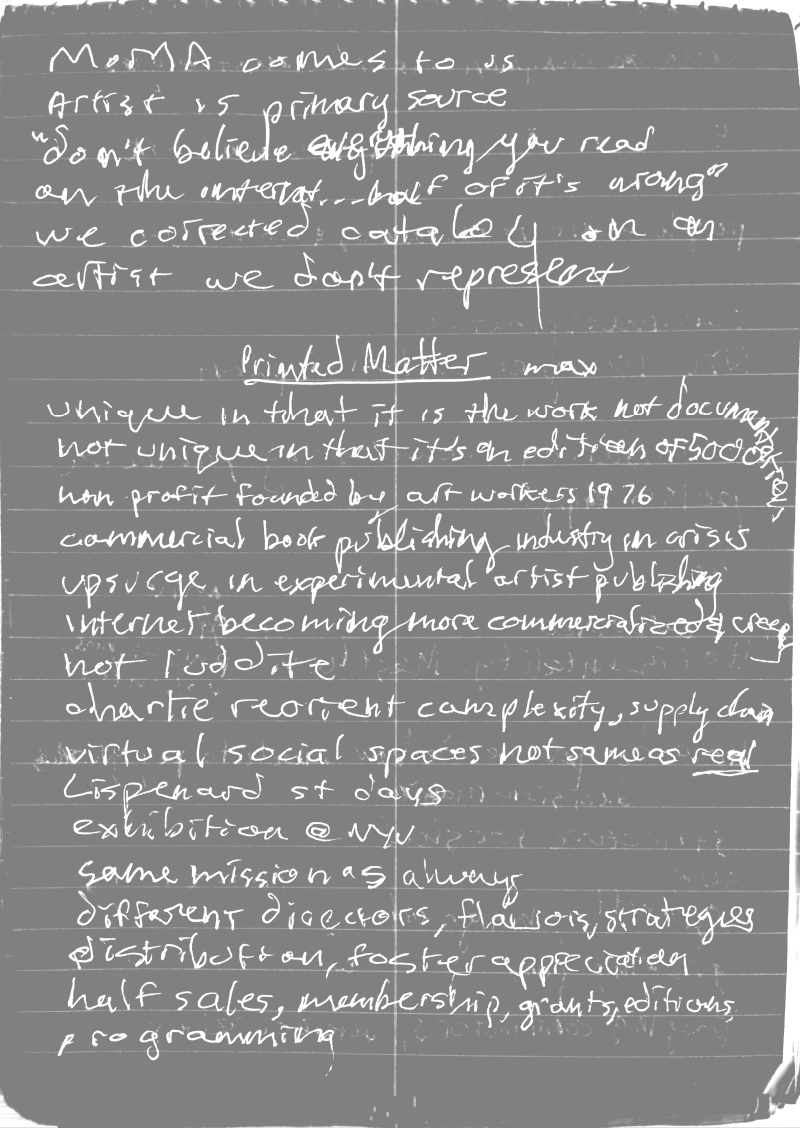 MoMA comes to us
Artist is primary source
"don't believe everything you read
on the internet... half of it's wrong"
we corrected catalog on an
artist we don't represent
Printed Matter max
unique in that it is the work not documentation
not unique in that it's an edition of 5000
non profit founded by art workers 1976
commercial book publishing industry in crisis
upsurge in experimental artist publishing
internet becoming more commercialized & creepy
not luddite
reorient complexity, supply chain
virtual social spaces not same as real
Lispenard st days
exhibition @ NYU
same mission as always
different directors, flavors, strategies
distribution, foster appreciation
half sales, membership, grants, editions,
programming